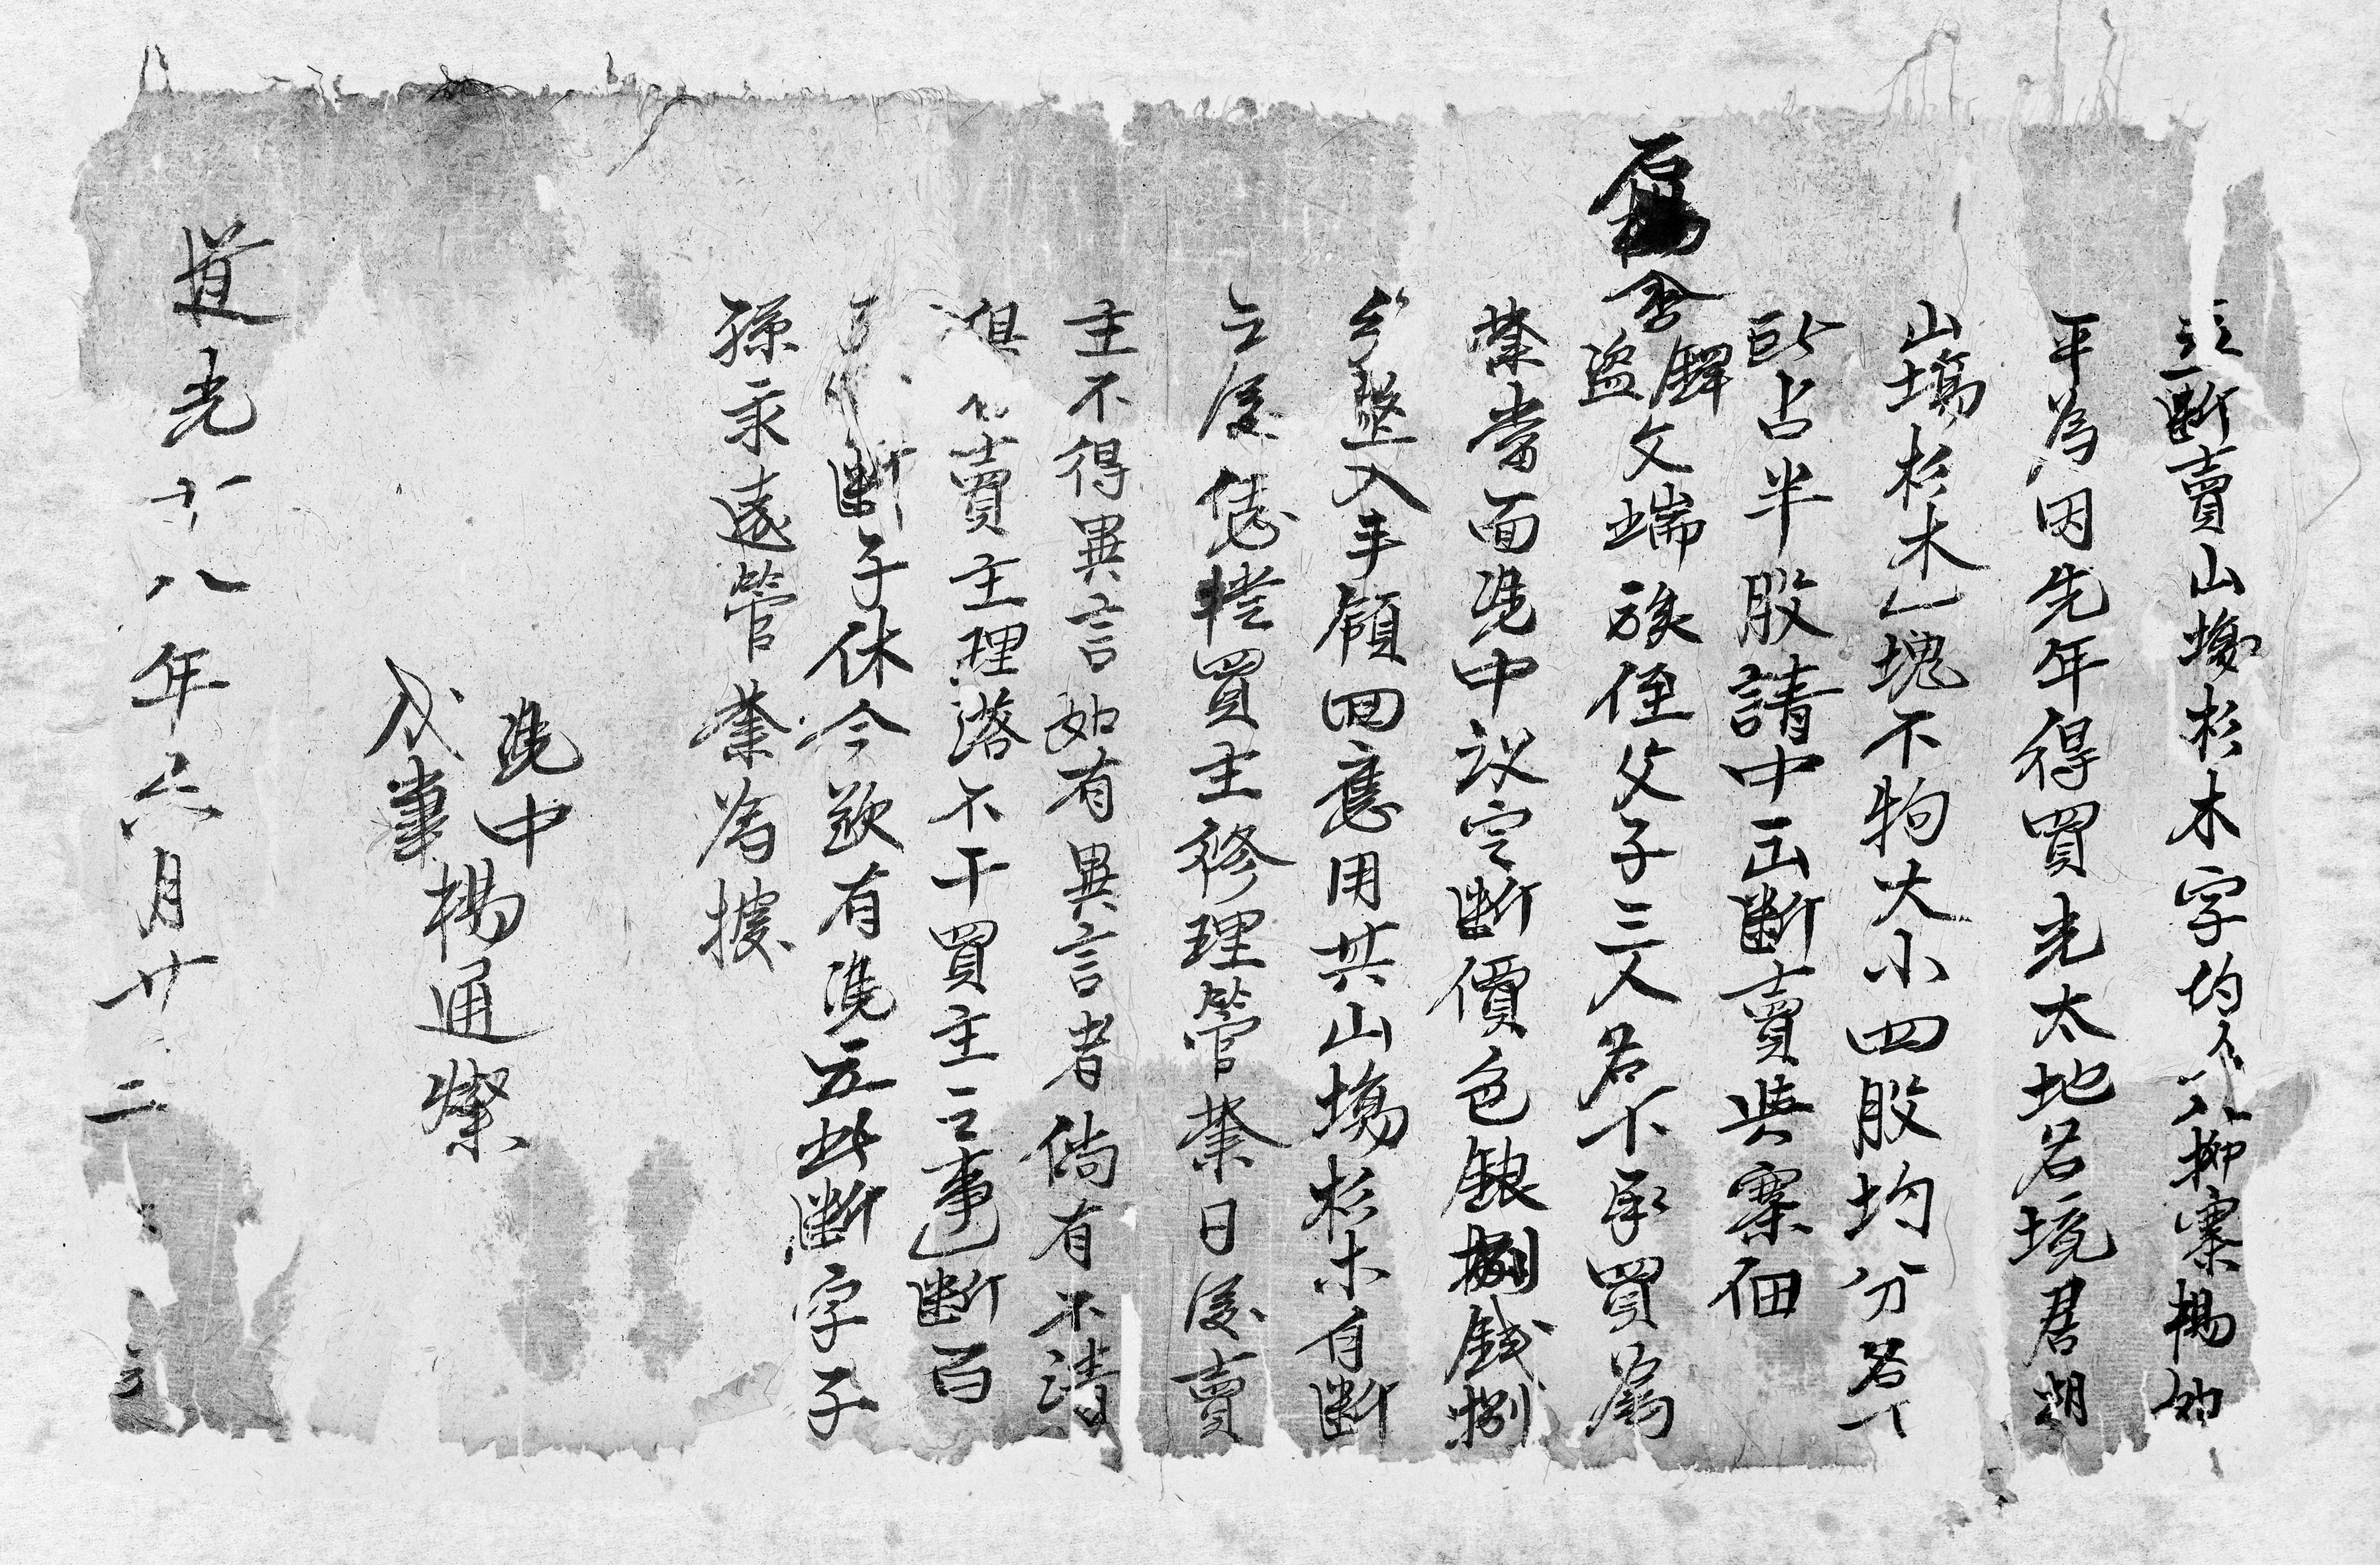 立斷賣山塲杉木字約人八柳寨楊的
平為因先年得買光太地名境君湖
山塲杉木乙塊不拘大小四股均分名下
占半股請中正斷賣與寨佃
石 鐸盜文端族侄父子三人名下承買爲
業當面憑中议定斷價色銀捌錢捌
分整入手領回應用其山塲杉木自斷
之後任從買主修理管業日後賣
主不得異言如有異言者倘有不清
俱 賣主理落不干買主之事一斷百
了 斷子休今欲有憑立此斷字子
孫永遠管業為據
憑中
代筆 楊通燦
道光十八年六月廿二 立